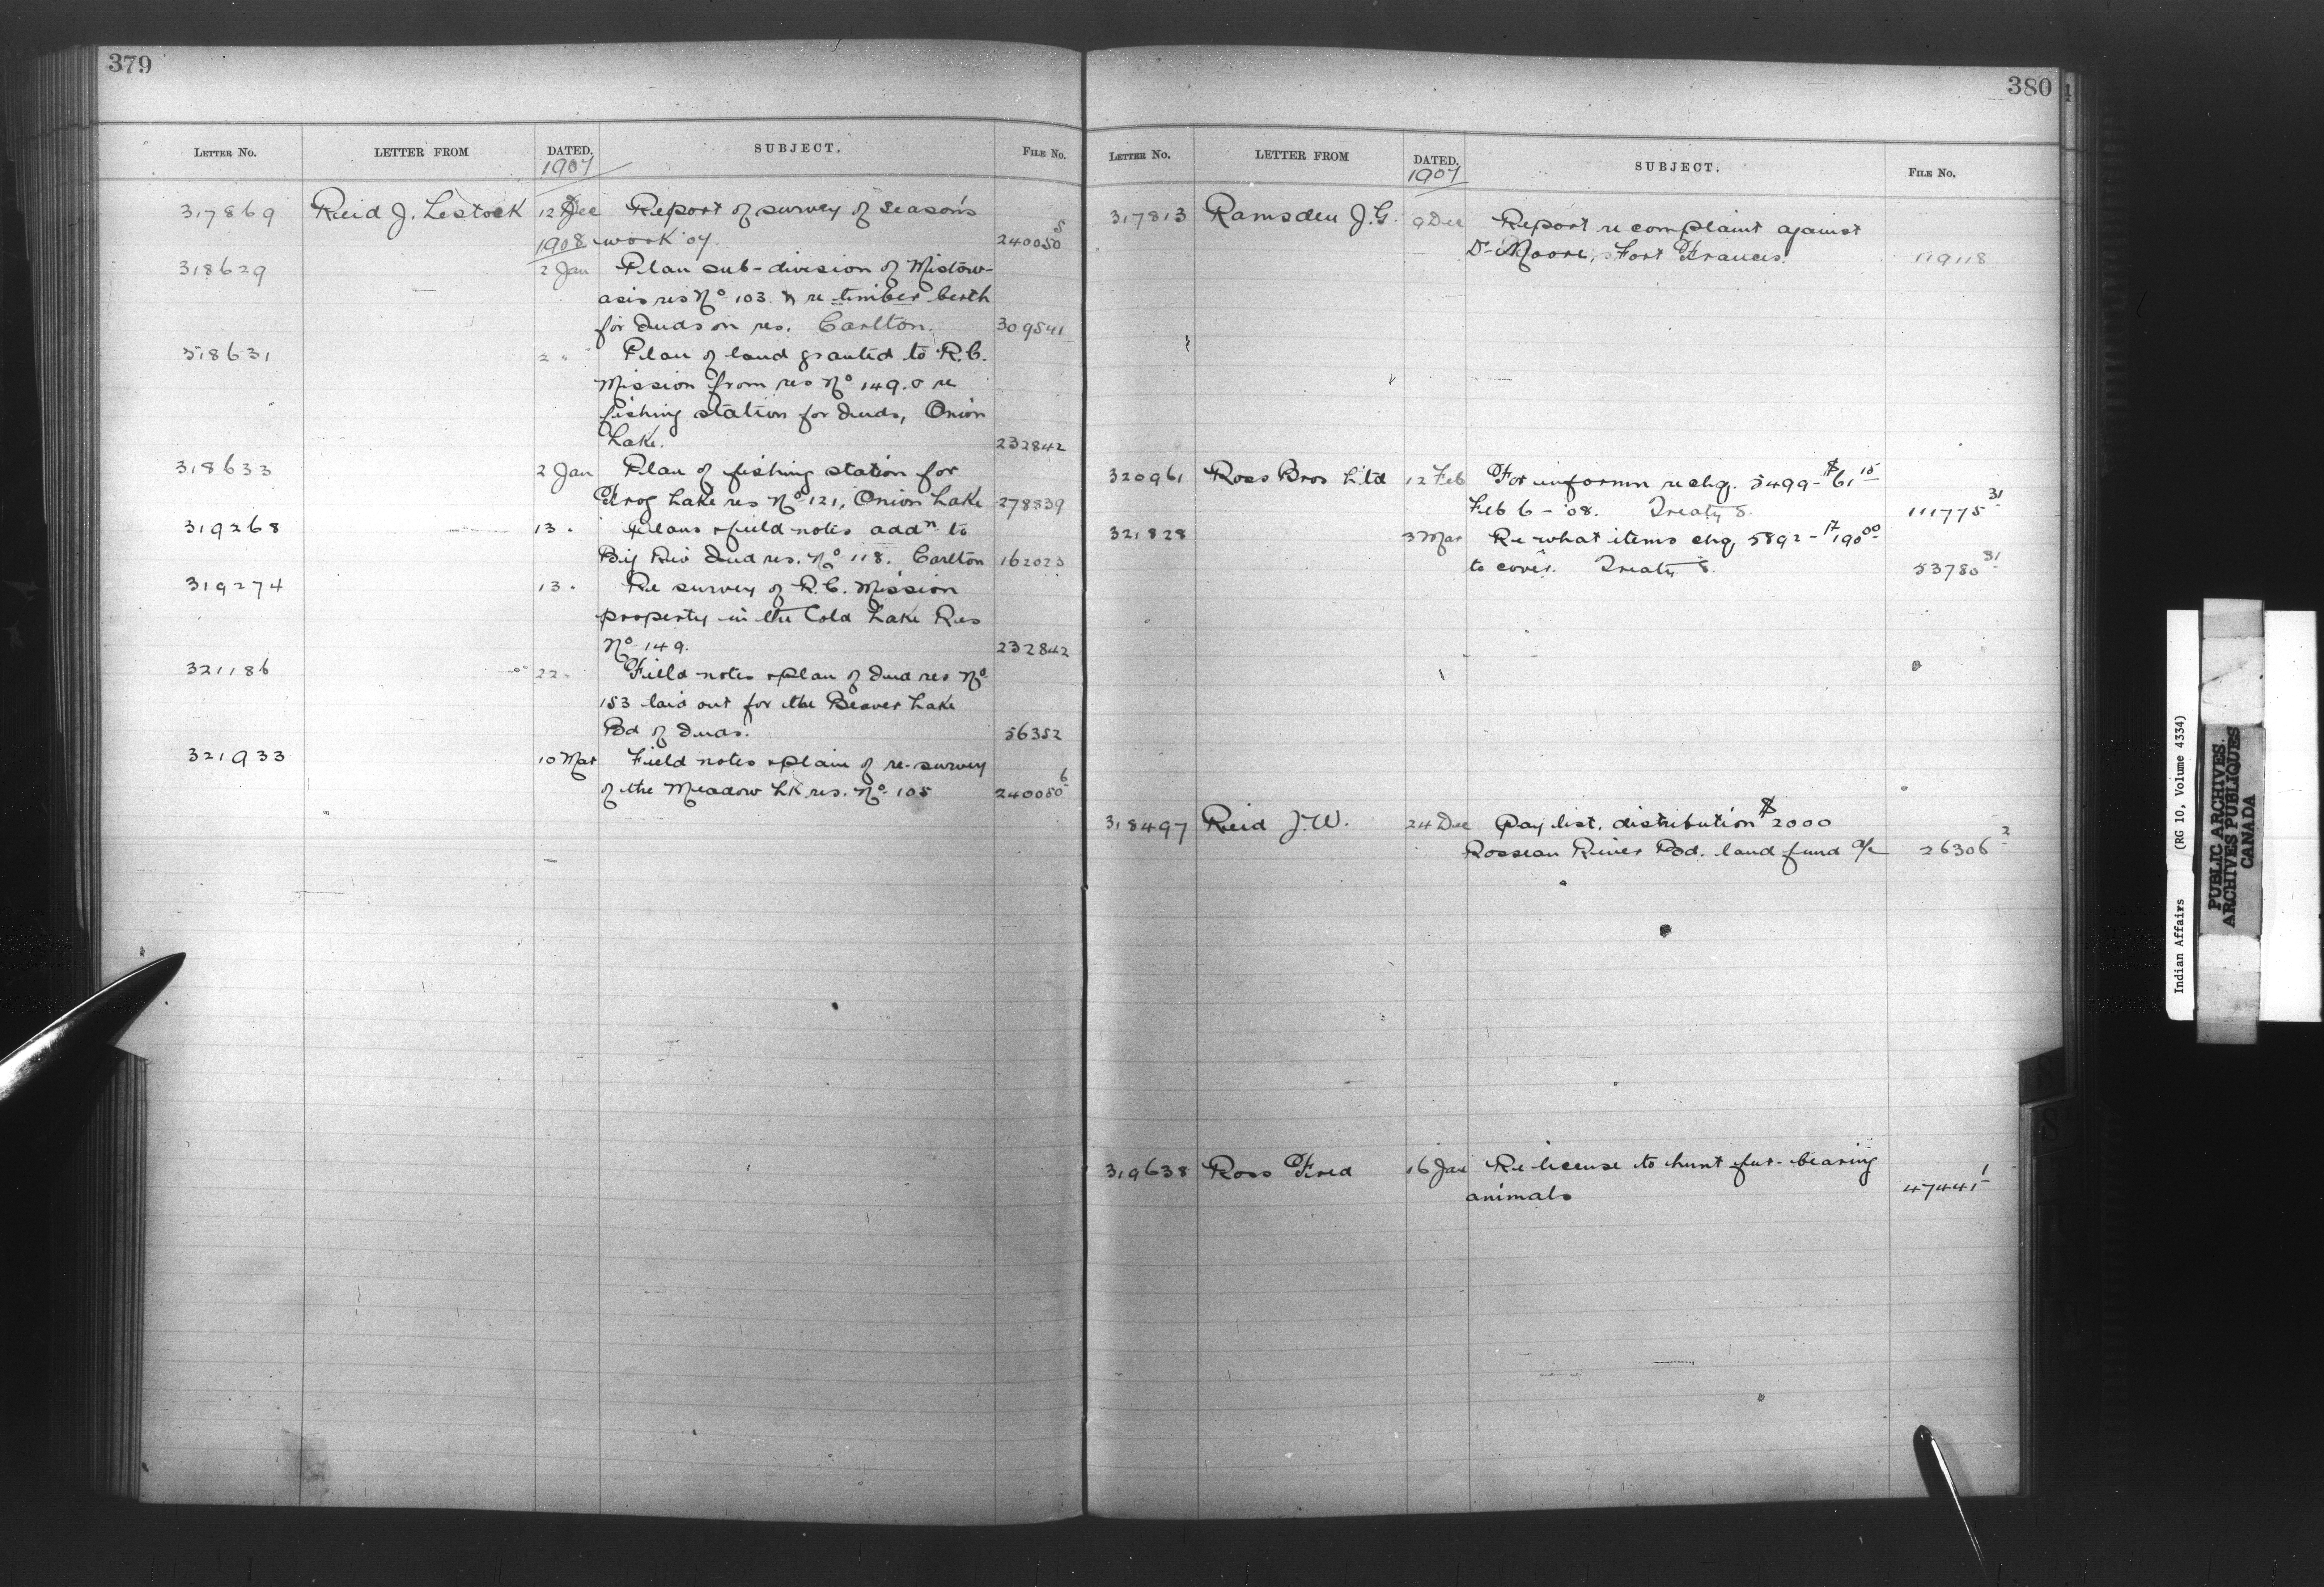 379
LETTER No. LETTER FROM DATED. SUBJECT. FILE No.
1907
317869 Reid J. Lestock 12 Dec Report of survey of seasons
1908 work '07. 240050 5
318629 2 Jan Plan sub-division of Mistow-
asis res No 103. & re timber berth
for Inds on res. Carlton. 309541
318631 2 " Plan of land granted to R.C.
Mission from res No 149. & re
fishing station for Inds, Onion
Lake. 232842
318633 2 Jan Plan of fishing station for
Frog Lake res No 121, Onion Lake 278839
319268 13 " Plans & field notes addn to
Big Riv Ind res. No 118. Carlton 162023
319274 13 " Re survey of R.C. Mission
property in the Cold Lake Res
No 149. 232842
321186 22 " Field notes & plan of Ind res No
153 laid out for the Beaver Lake
Bd of Inds. 56352
321933 10 Mar Field notes & plan of re-survey
of the Meadow Lk res. No 105 240050 6
380
LETTER No. LETTER FROM DATED. SUBJECT. FILE No.
1907
317813 Ramsden J.G. 9 Dec Report re complaint against
Dr Moore, Fort Frances. 119118
320961 Ross Bros Ltd 12 Feb For informn re chq. 5499 - $61 15
Feb 6 - '08. Treaty 8. 111775 31
321828 3 Mar Re what items chq, 5892 - 190 00
to cover. Treaty 8. 53780 31
318497 Reid J.W. 24 Dec Pay list, distribution $2000
Rosseau River Bd. land fund a/c 26306 2
319638 Ross Fred 16 Jan Re license to hunt fur-bearing
animals 47441 1
Indian Affairs (RG 10, Volume 4334)
PUBLIC ARCHIVES
ARCHIVES PUBLIQUES
CANADA